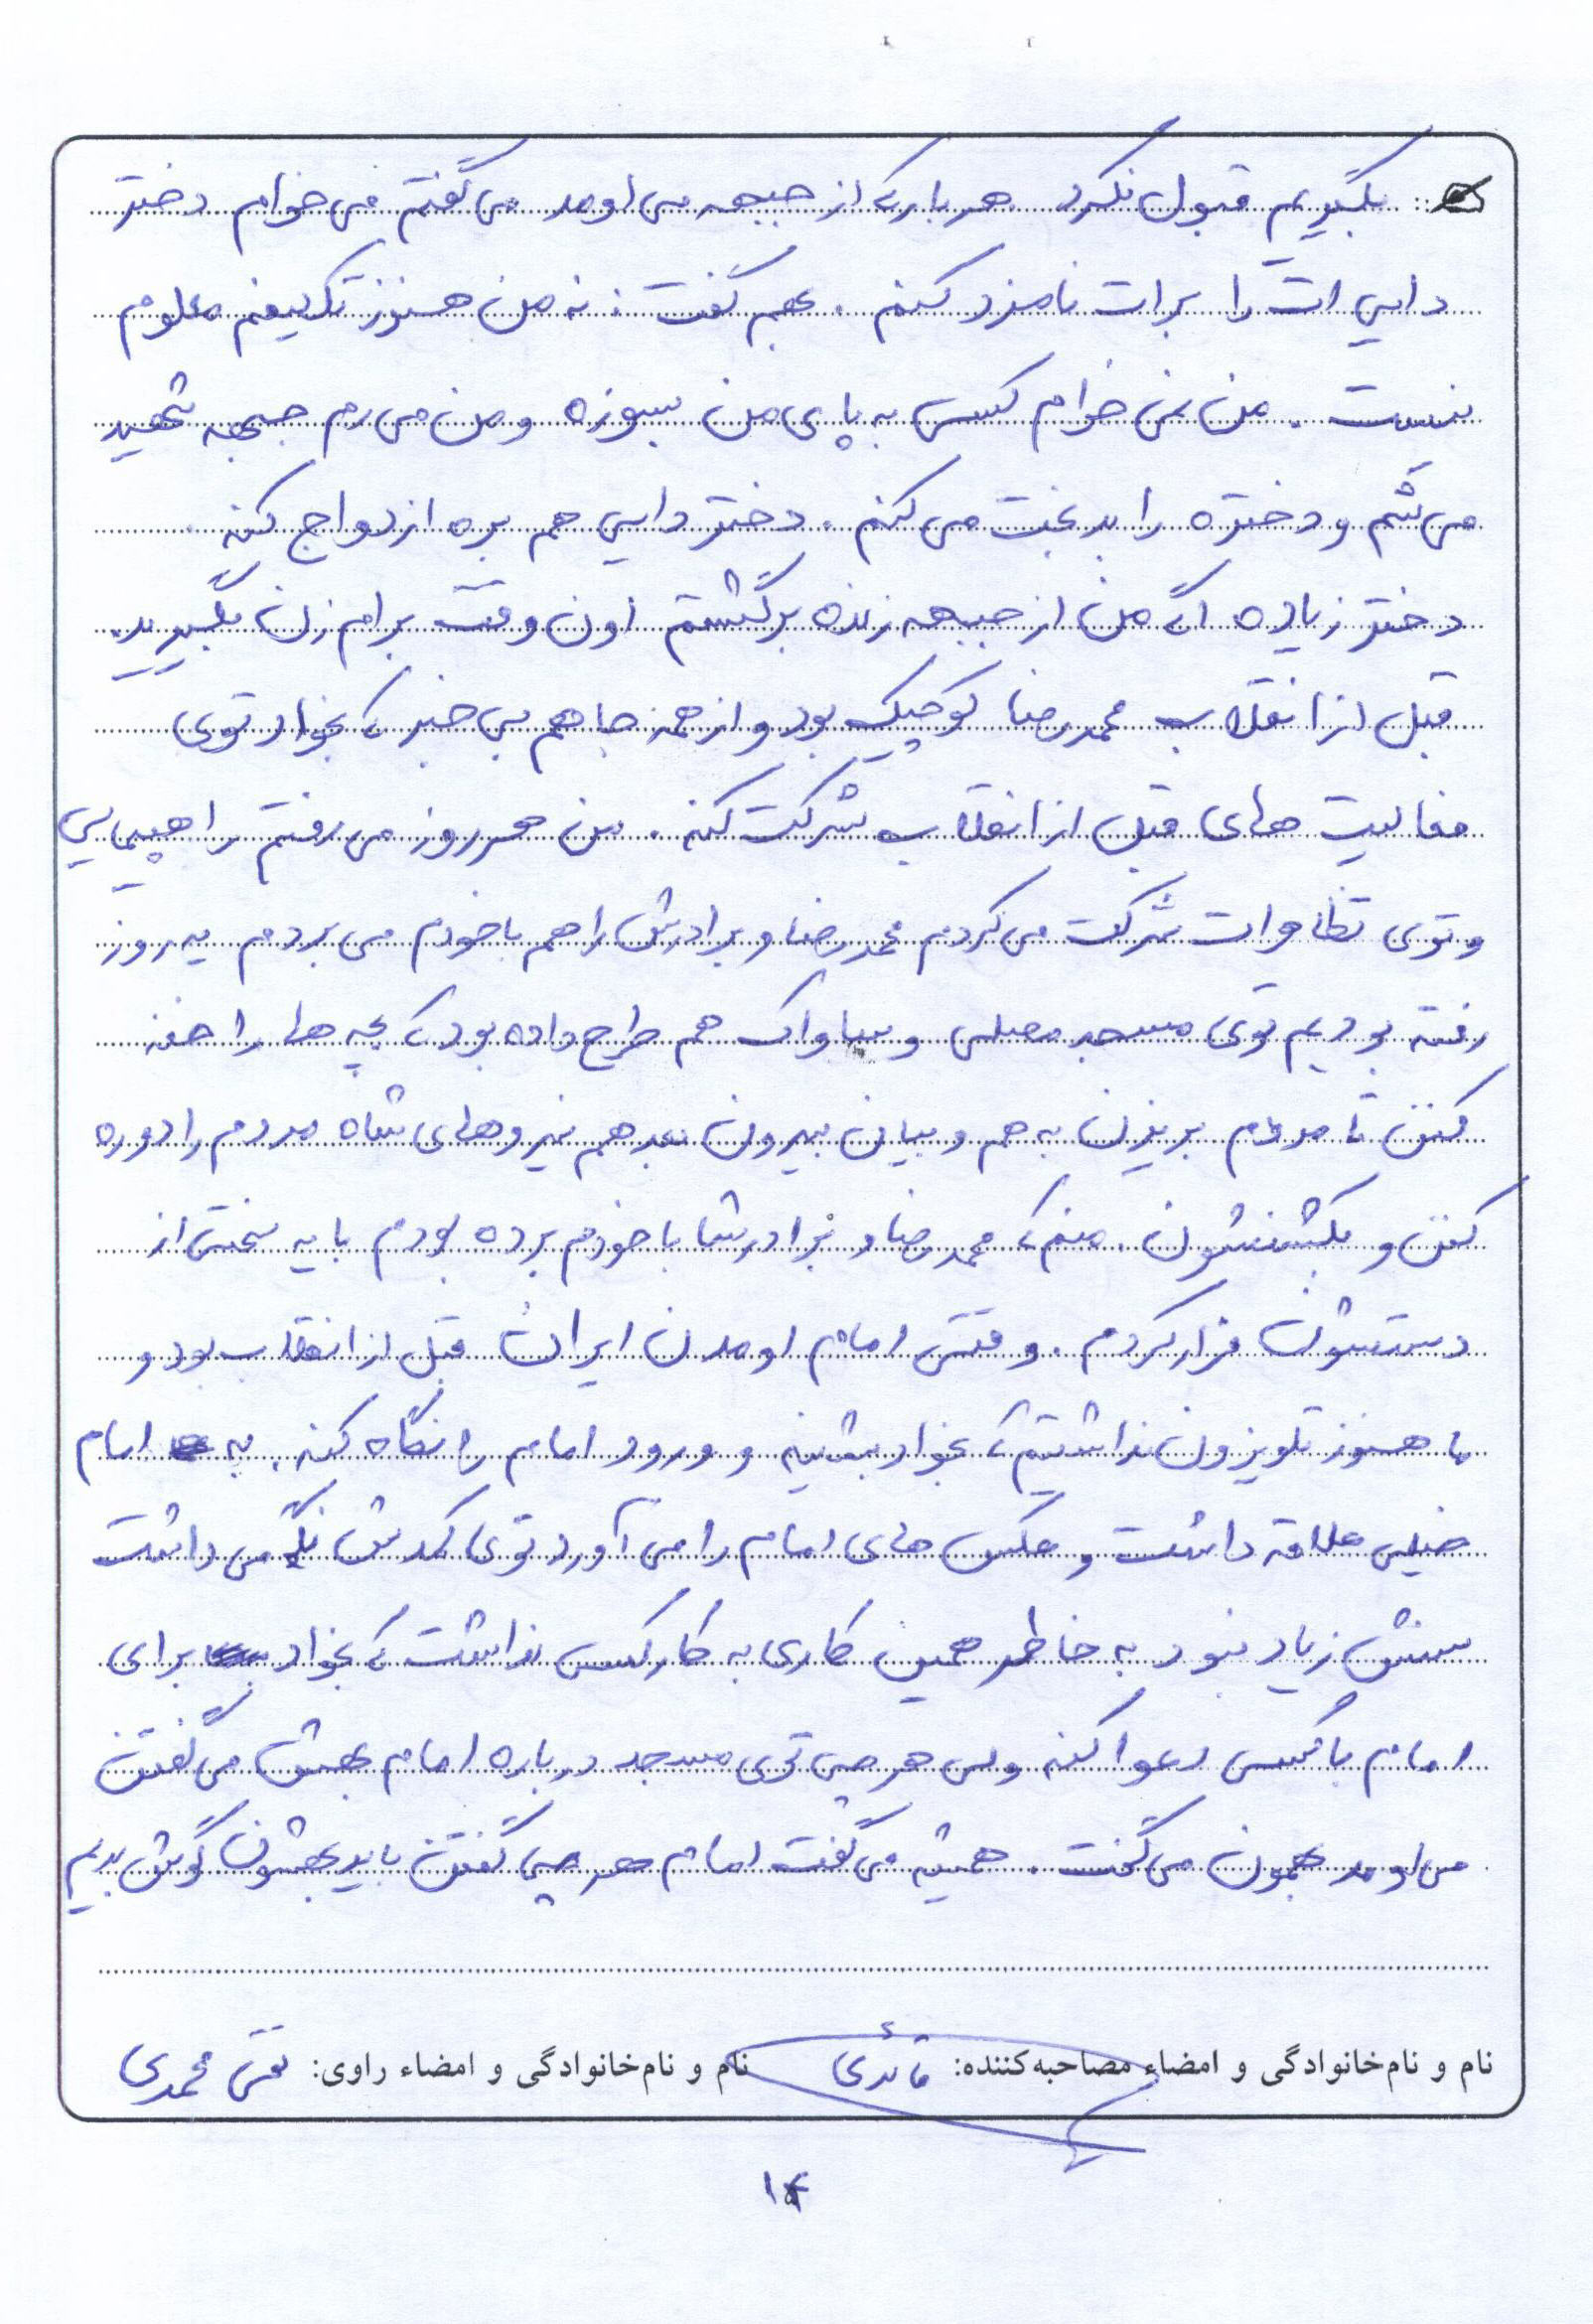 بگیریم قبول نکرد. هر بار که از جبهه می اومد می گفتم می خوام دختر
دایی ات را برات نامزد کنم. بهم گفت: نه من هنوز تکلیفم معلوم
نیست. من نمی خوام کسی به پای من بسوزه و من می رم جبهه شهید
می شم و دختره را بدبخت می کنم. دختر دایی هم بره ازدواج کنه.
دختر زیاده اگه من از جبهه زنده برگشتم اون وقت برام زن بگیرید.
قبل از انقلاب محمدرضا کوچیک بود و از همه جا هم بی خبر که بخواد توی
فعالیت های قبل از انقلاب شرکت کنه. من هر روز می رفتم راهپیمایی
و توی تظاهرات شرکت می کردم محمدرضا و برادرش را هم با خودم می بردم یه روز
رفته بودیم توی مسجد مصلی و ساواک هم طرح داده بود که بچه ها را خفه
کنن تا مردم بریزن به هم و بیان بیرون بعد هم نیروهای شاه مردم را دوره
کنن و بکشنشون. منم که محمدرضا و برادرشا با خودم برده بودم با یه سختی از
دستشون فرار کردم. وقتی امام اومدن ایران قبل از انقلاب بود و
ما هنوز تلویزون نداشتیم که بخواد بشینه و ورود امام را نگاه کنه. به امام
خیلی علاقه داشت و عکس های امام را می آورد توی کمدش نگه می داشت
سنش زیاد نبود به خاطر همین کاری به کار کسی نداشت که بخواد برای
امام با کسی دعوا کنه ولی هر چی توی مسجد درباره امام بهش می گفتن
می اومد بهمون می گفت. همیشه می گفت امام هر چی گفتن باید بهشون گوش بدیم
نام و نام خانوادگی و امضاء مصاحبه کننده: قائدی نام و نام خانوادگی و امضاء راوی: محمدی
۱۴